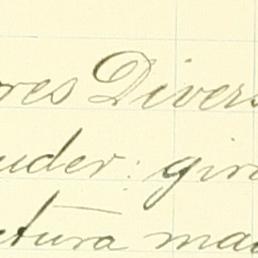 res Divers
uder: gir
ctura ma